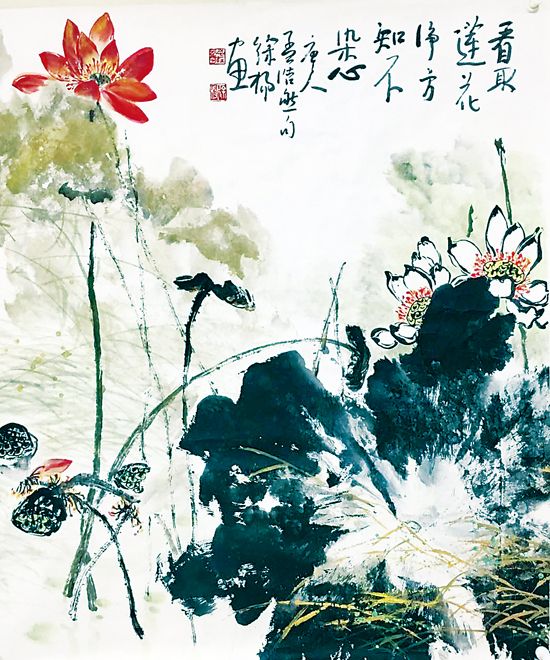 看取
蓮花
净方
知不
染心
唐人
孟浩然句
徐
画